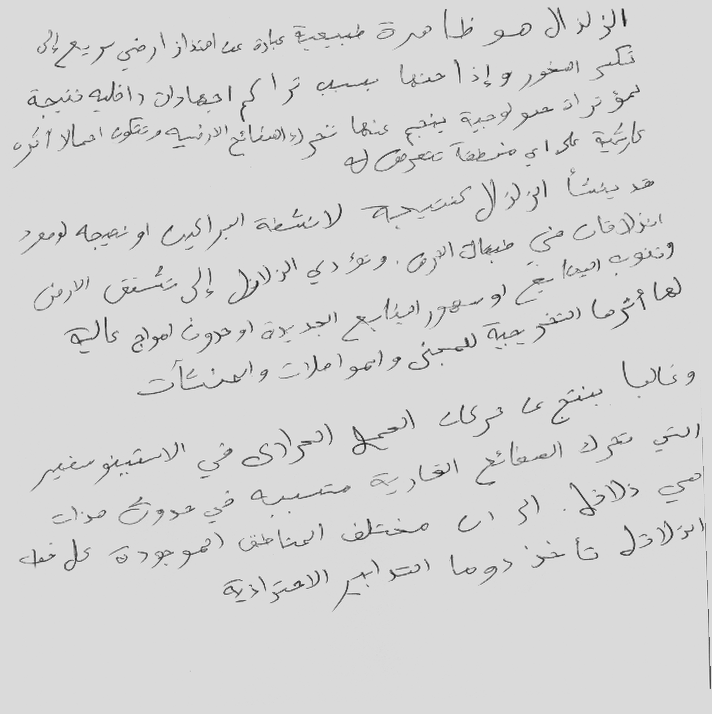 الزلزال هو ظاهرة طبيعية عبارة عن اهتزاز ارضي سريع إلى
تكسر الصخور وإذا حتها بسبب تراكم اجهادات داخليه نتيجة
لمؤثرات جيولوجية ينجم عنها تحرك الصفائح الارضيه وتتكون اعمالا
كارثية على اي منطقة تتعرض له
قد ينشأ الزلزال كنتيجة لانشطة البراكين او نتيجه لوجود
انزلاقات في طبقات الارض. وتؤدي الزلازل إلى تشقق الارض
ونضوب الينابيع او ظهور الينابيع الجديدة او حدوث امواج عالية
لها أثرها التخريبية للمبنى والمواصلات والمنشآت
وغالبا ينتج عن حركات الحمل الحراري في الاستينوسفير
التي تحرك الصفائح القارية متسببه في حدوث هزات
هي زلازل. الى ان مختلف المناطق الموجودة على خط
الزلازل تأخذ دوما التدابير الاحترازية